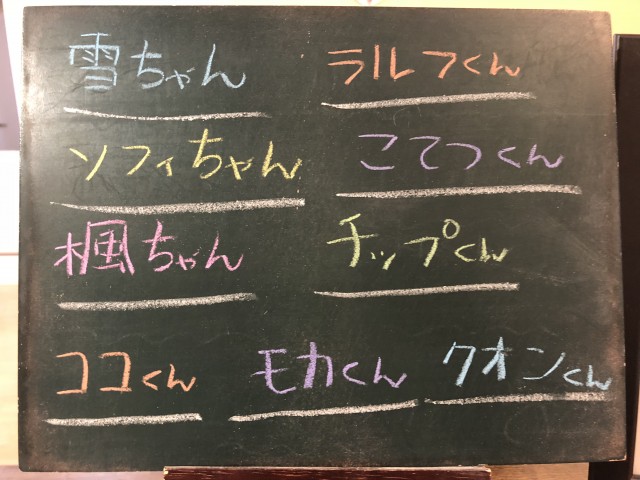 雪ちゃん ラルフくん
ソフィちゃん こてつくん
楓ちゃん チップくん
ココくん モカくん クオンくん